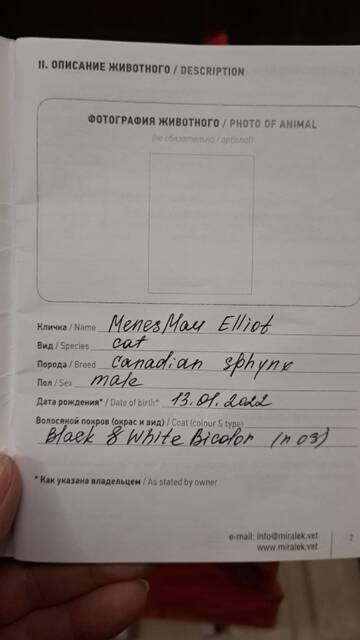 II. ОПИСАНИЕ ЖИВОТНОГО / DESCRIPTION
ФОТОГРАФИЯ ЖИВОТНОГО / PHOTO OF ANIMAL
(не обязательно / optional)
Кличка / Name MenesMau Elliot
Вид / Species cat
Порода / Breed canadian sphynx
Пол / Sex male
Дата рождения* / Date of birth* 13.01.2022
Волосяной покров (окрас и вид) / Coat (colour & type)
Black & White Bicolor (n 03)
* Как указана владельцем / As stated by owner
e-mail: info@miralek.vet
www.miralek.vet
2